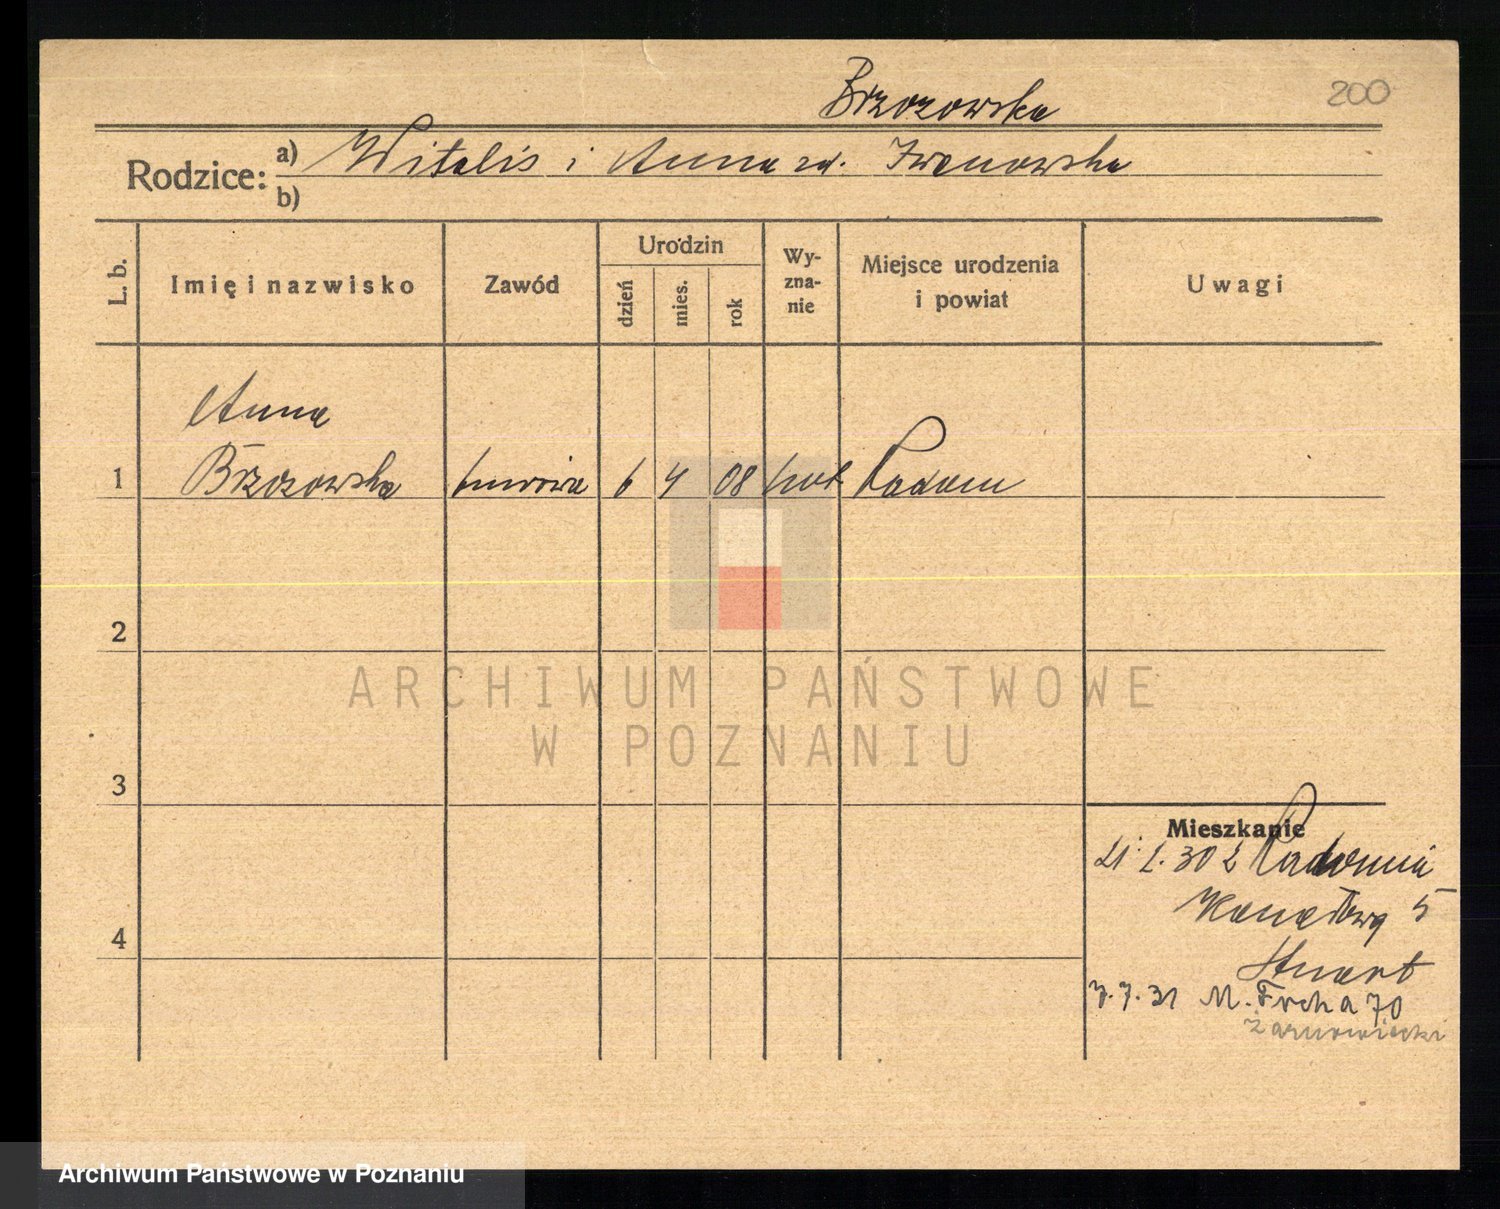 Brzozowska
200
Rodzice: a) Witalis i Anna zd. Iwanowska
b)
L. b.
Imię i nazwisko
Zawód
Urodzin
dzień
mies.
rok
Wy-
zna-
nie
Miejsce urodzenia
i powiat
Uwagi
Anna
1 Brzozowska 6 4 08 kat Radom
2
3
4
Mieszkanie
21.2.30 z Radomia
Kanałowa 5
Stuart
7.7.31 M. Focha 70
Żarnowiecki
ARCHIWUM PAŃSTWOWE
W POZNANIU
Archiwum Państwowe w Poznaniu